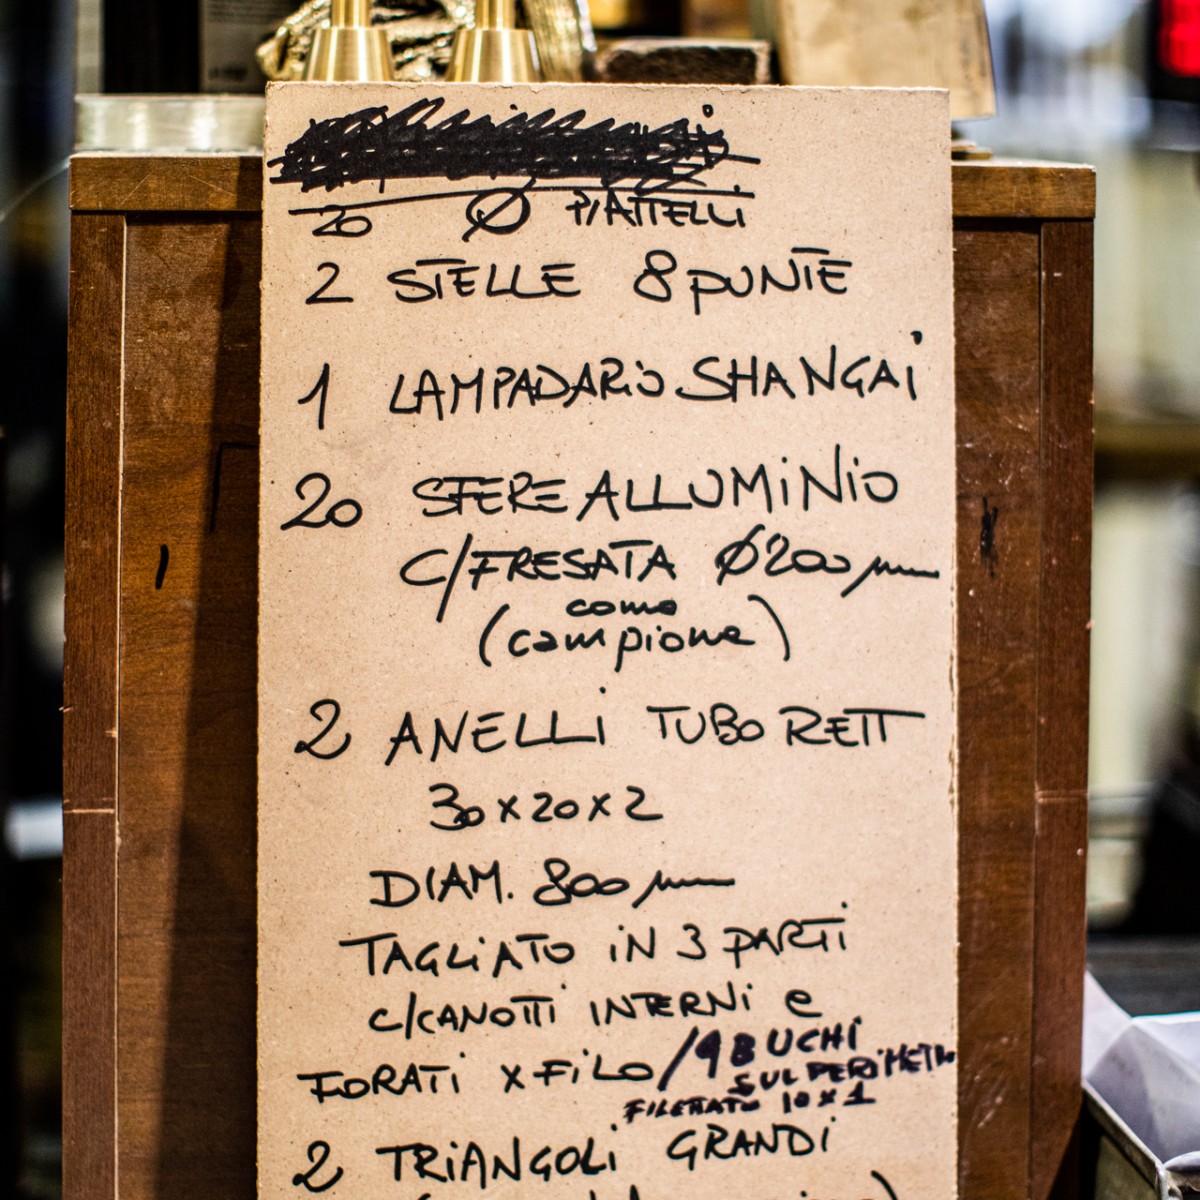 20 Ø PIATTELLI
2 STELLE 8 PUNTE
1 LAMPADARIO SHANGAI
20 SFERE ALLUMINIO
C/FRESATA Ø 200 mm
(come
campione)
2 ANELLI TUBO RETT
30 x 20 x 2
DIAM. 800 mm
TAGLIATO IN 3 PARTI
C/CANOTTI INTERNI e
FORATI x FILO /9 BUCHI
SUL PERIMETRO
FILETTATO 10 x 1
2 TRIANGOLI GRANDI